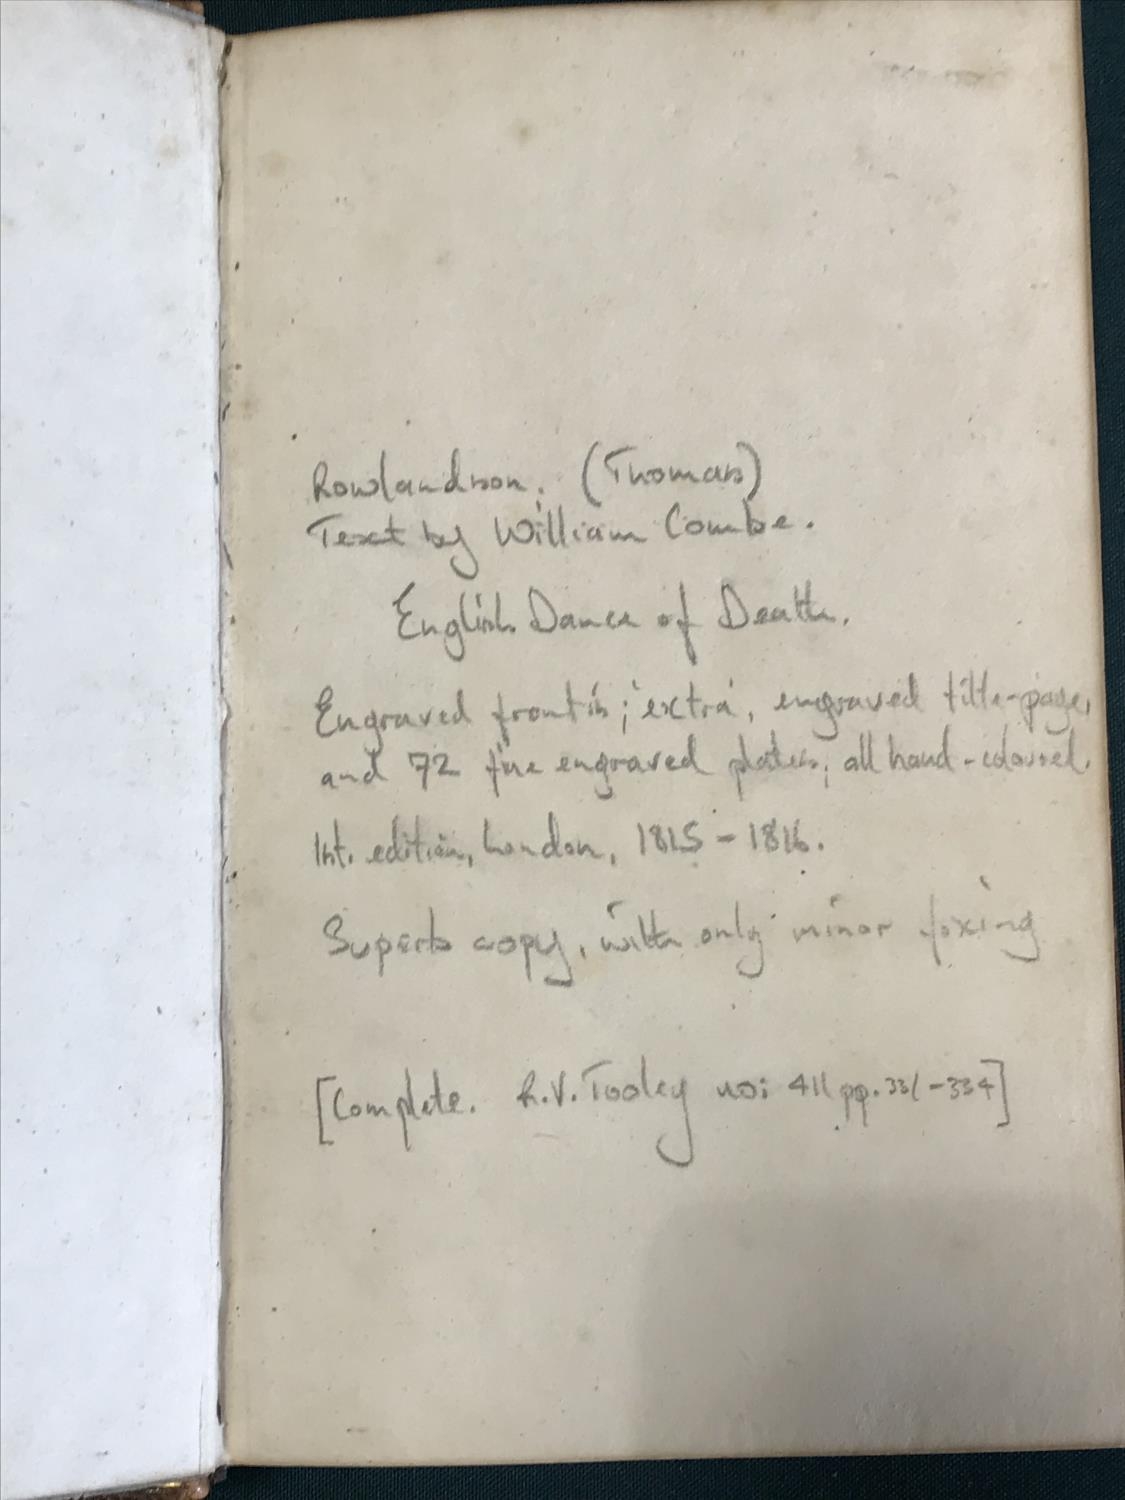 Rowlandson. (Thomas)
Text by William Combe.
English Dance of Death.
Engraved frontis; 'extra', engraved title-page,
and 72 fine engraved plates; all hand-coloured.
1st. edition, London, 1815-1816.
Superb copy, with only minor foxing
[Complete. R.V. Tooley no: 411 pp. 331-334]